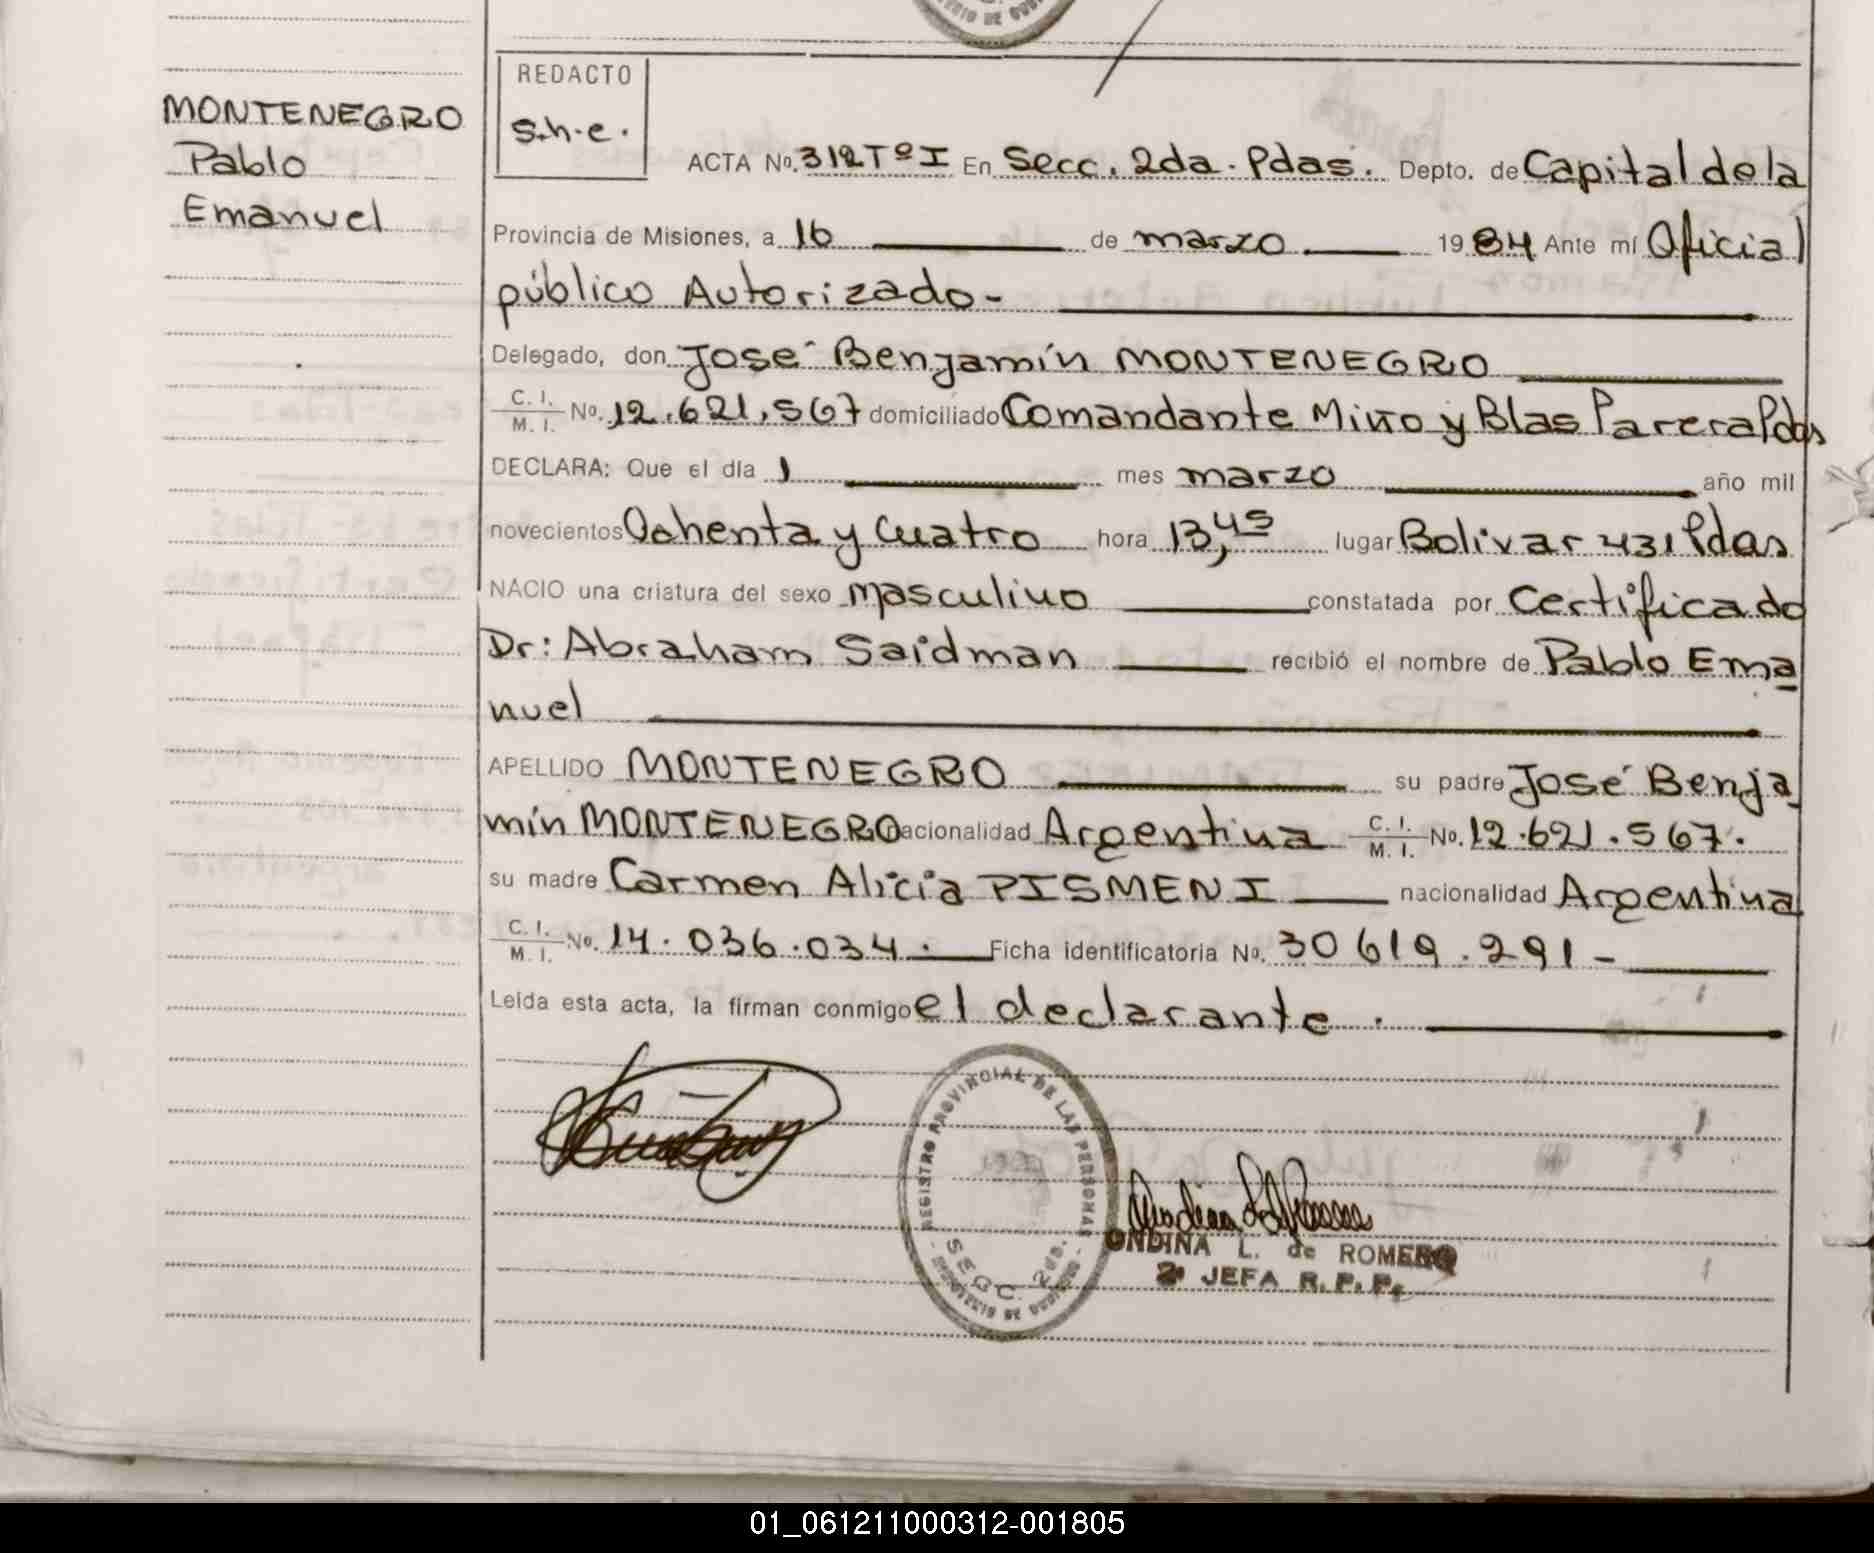 MONTENEGRO
Pablo
Emanuel
REDACTO
S.h.e.
ACTA No. 312 Tº I En Secc. 2da. Pdas. Depto. de Capital de la
Provincia de Misiones, a 16 de marzo 1984 Ante mí Oficial
público Autorizado-
Delegado, don José Benjamín MONTENEGRO
C. I. M. I. No. 12.621.567 domiciliado Comandante Miño y Blas Parera Pdas
DECLARA: Que el día 1 mes marzo año mil
novecientos Ochenta y Cuatro hora 13,45 lugar Bolivar 431 Pdas
NACIO una criatura del sexo masculino constatada por Certificado
Dr: Abraham Saidman recibió el nombre de Pablo Ema
nuel
APELLIDO MONTENEGRO su padre José Benja
mín MONTENEGRO nacionalidad Argentina C. I. M. I. No. 12.621.567.
su madre Carmen Alicia PISMENI nacionalidad Argentina
C. I. M. I. No. 14.036.034. Ficha identificatoria No. 30 619.291-
Leída esta acta, la firman conmigo el declarante.
REGISTRO PROVINCIAL DE LAS PERSONAS
SECC. 2da.
ONDINA L. de ROMERO
2ª JEFA R. P. P.
01_061211000312-001805